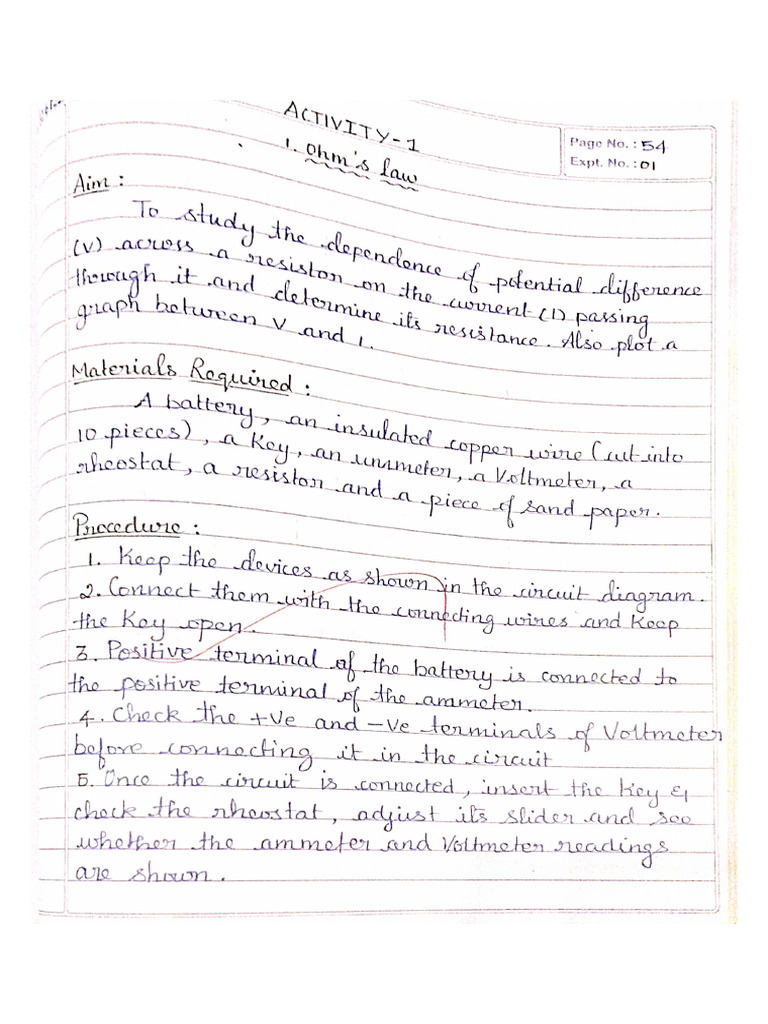 ACTIVITY-1
Page No. : 54
Expt. No. : 01
1. Ohm's law
Aim :
To study the dependence of potential difference
(V) across a resistor on the current (I) passing
thorough it and determine its resistance. Also plot a
graph between V and I.
Materials Required :
A battery, an insulated copper wire (cut into
10 pieces), a Key, an ammeter, a Voltmeter, a
rheostat, a resistor and a piece of sand paper.
Procedure :
1. Keep the devices as shown in the circuit diagram.
2. Connect them with the connecting wires and Keep
the Key open.
3. Positive terminal of the battery is connected to
the positive terminal of the ammeter.
4. Check the +ve and -ve terminals of Voltmeter
before connecting it in the circuit
5. Once the circuit is connected, insert the Key &
check the rheostat, adjust its slider and see
whether the ammeter and Voltmeter readings
are shown.